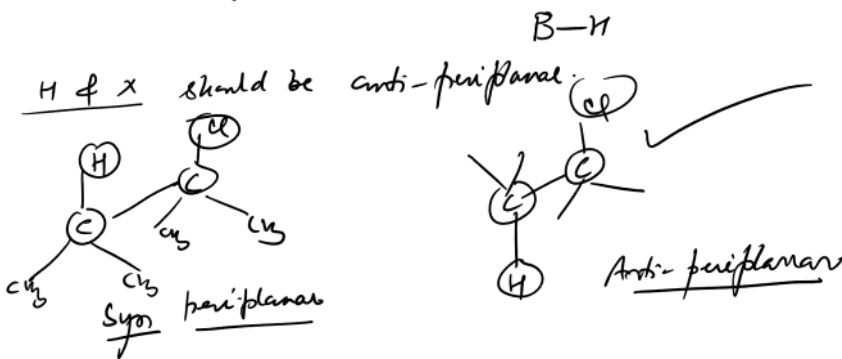 B—H
H & X should be anti-periplanar.
H Cl
C C
CH3 CH3 CH3 CH3
Syn periplanar
Cl
C C
H
Anti-periplanar